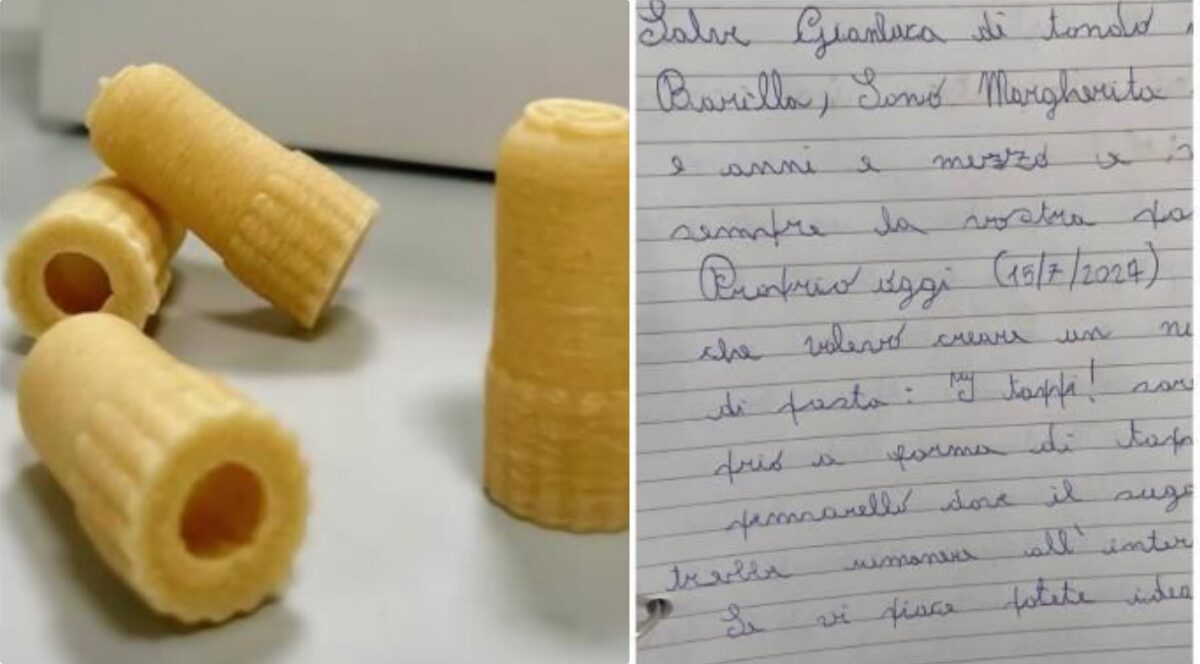 Salve Gianluca di tondo
Barilla, Sono Margherita
e anni e mezzo e
sempre la vostra pa
Proprio oggi (15/7/2024)
che volevo creare un ne
di pasta: "I tappi! sar
prio a forma di tap
pennarello dove il sugo
trebbe rimanere all'inter
Se vi piace potete idea